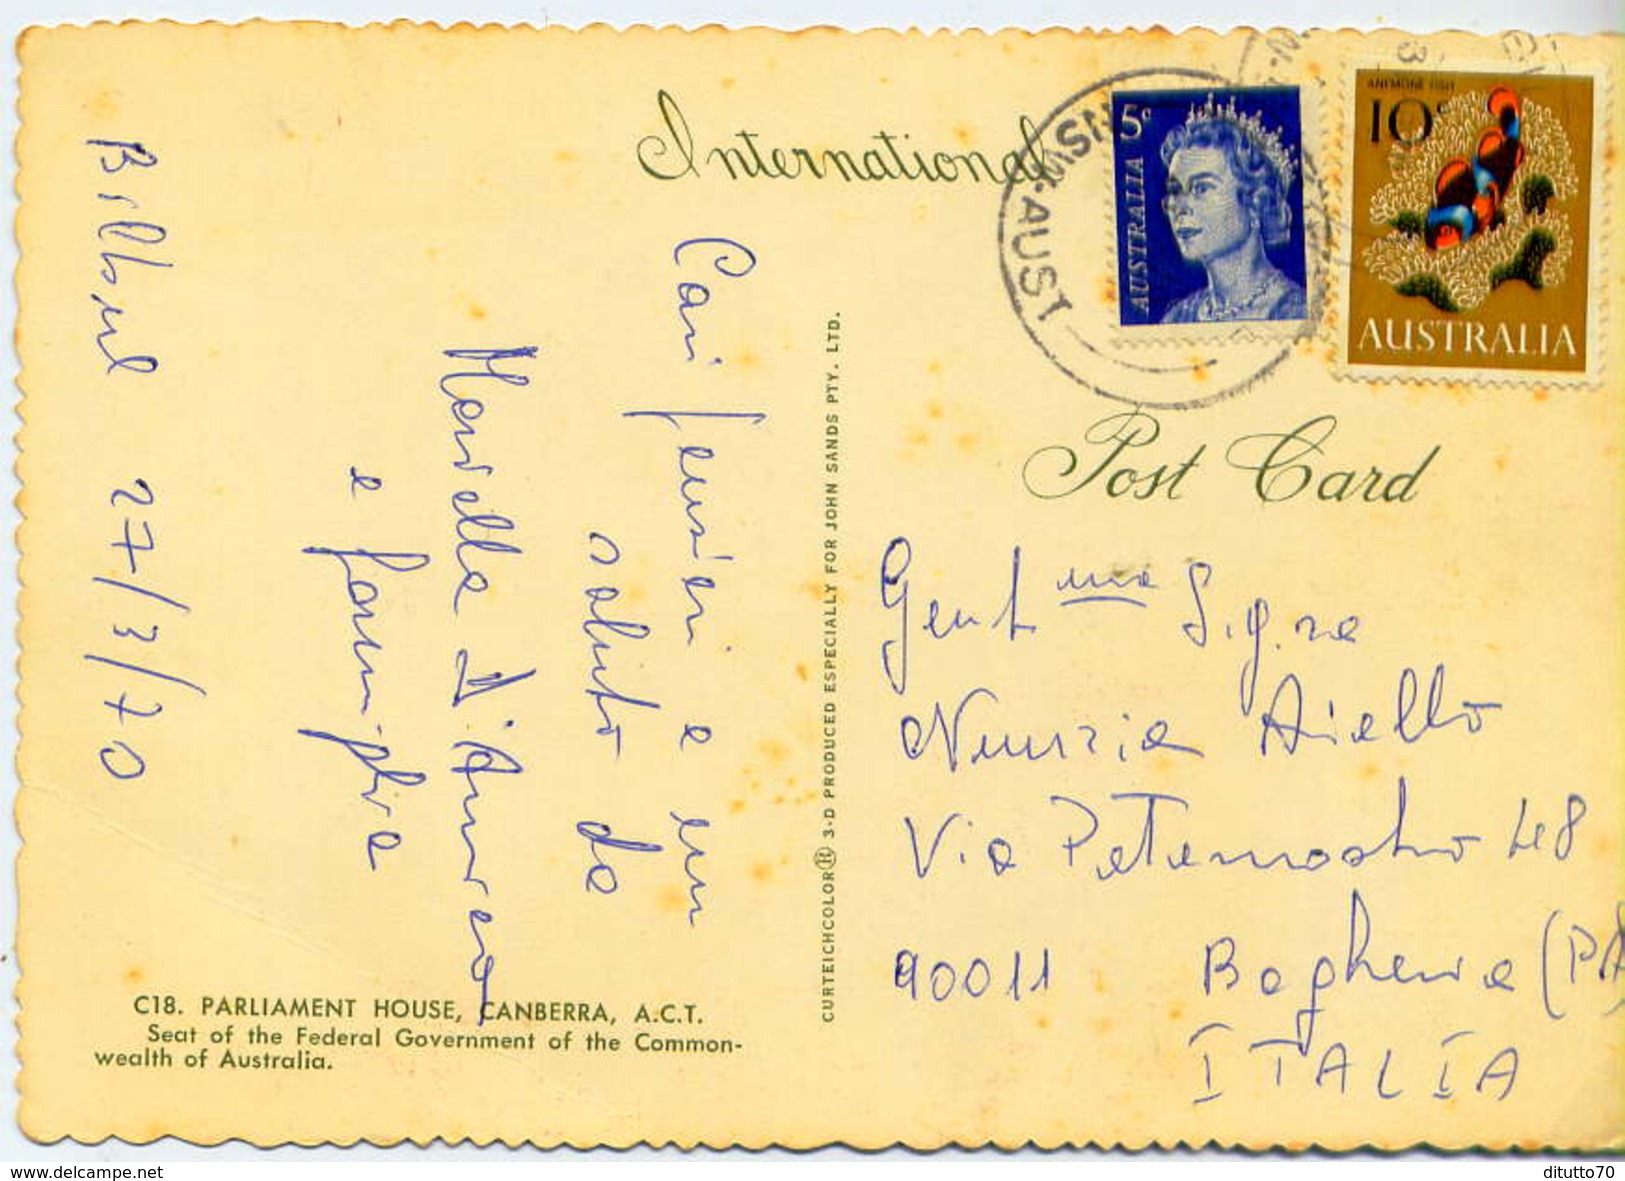 International
Post Card
5c
AUSTRALIA
ANEMONE FISH
10c
AUSTRALIA
N.S.W.-AUST
3
Bilbul 27/3/70
Cari pensieri e un
saluto da
Marella D'Amreg
e famiglia
CURTEICHCOLOR® 3-D PRODUCED ESPECIALLY FOR JOHN SANDS PTY. LTD.
Gent ma Sig.ra
Nunzia Aiello
Via Paternostro 48
90011 Bagheria (PA
ITALIA
C18. PARLIAMENT HOUSE, CANBERRA, A.C.T.
Seat of the Federal Government of the Common-
wealth of Australia.
www.delcampe.net
ditutto70